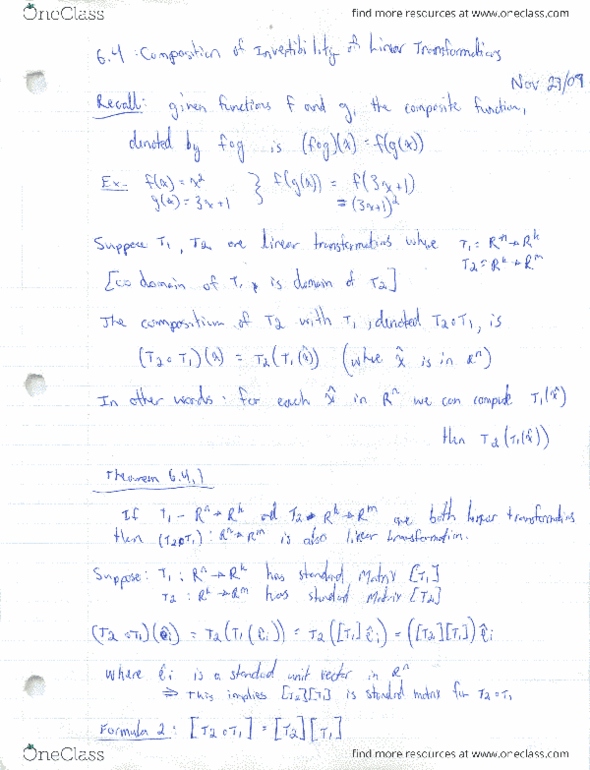 OneClass
find more resources at www.oneclass.com
6.4 : Composition of Invertibility of Linear Transformations
Nov 23/09
Recall: given functions f and g, the composite function,
denoted by f∘g is (f∘g)(x) = f(g(x))
Ex - f(x) = x² } f(g(x)) = f(3x+1)
g(x) = 3x+1 = (3x+1)²
Suppose T₁, T₂ are linear transformations where T₁ : Rⁿ → Rᵏ
T₂ : Rᵏ → Rᵐ
[co domain of T₁ is domain of T₂]
The composition of T₂ with T₁, denoted T₂∘T₁, is
(T₂∘T₁)(x) = T₂(T₁(x̂)) (where x̂ is in Rⁿ)
In other words : for each x̂ in Rⁿ we can compute T₁(x̂)
then T₂(T₁(x̂))
Theorem 6.4.1
If T₁ - Rⁿ → Rᵏ and T₂ → Rᵏ → Rᵐ are both linear transformations
then (T₂∘T₁) : Rⁿ → Rᵐ is also linear transformation.
Suppose : T₁ : Rⁿ → Rᵏ has standard Matrix [T₁]
T₂ : Rᵏ → Rᵐ has standard Matrix [T₂]
(T₂∘T₁)(êi) = T₂(T₁(êi)) = T₂([T₁]êi) = ([T₂][T₁])êi
where êi is a standard unit vector in Rⁿ
⇒ This implies [T₂][T₁] is standard matrix for T₂∘T₁
Formula 2 : [T₂∘T₁] = [T₂][T₁]
OneClass
find more resources at www.oneclass.com